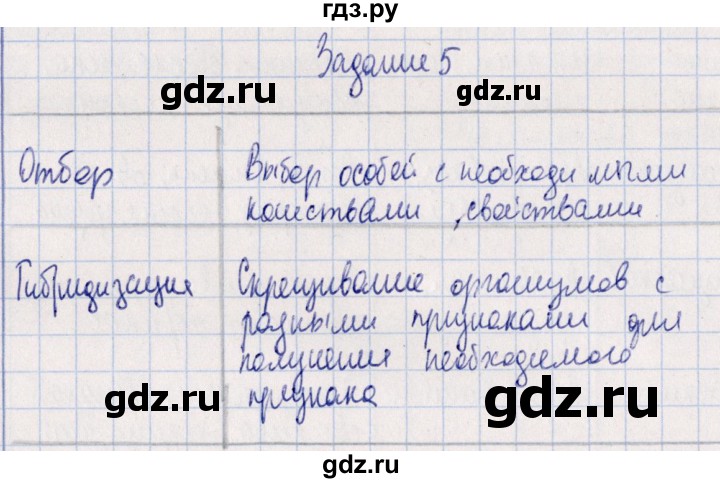 гдз.ру
Задание 5
gdz.ru
gdz.ru
Отбор
Выбор особей с необходимыми
качествами, свойствами
gdz.ru
Гибридизация
Скрещивание организмов с
разными признаками для
получения необходимого
признака
gdz.ru
gdz.ru
gdz.ru